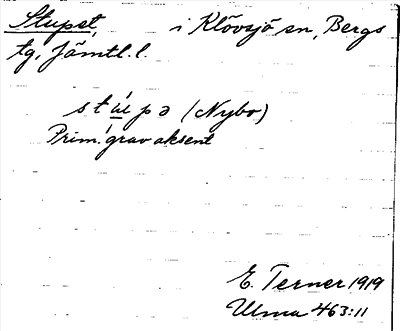 Stupet, i Klövsjö sn, Bergs
tg, Jämtl. l.
st ú̱ pə (Nybo)
Prim. grav aksent
E. Terner 1919
Ulma 463:11